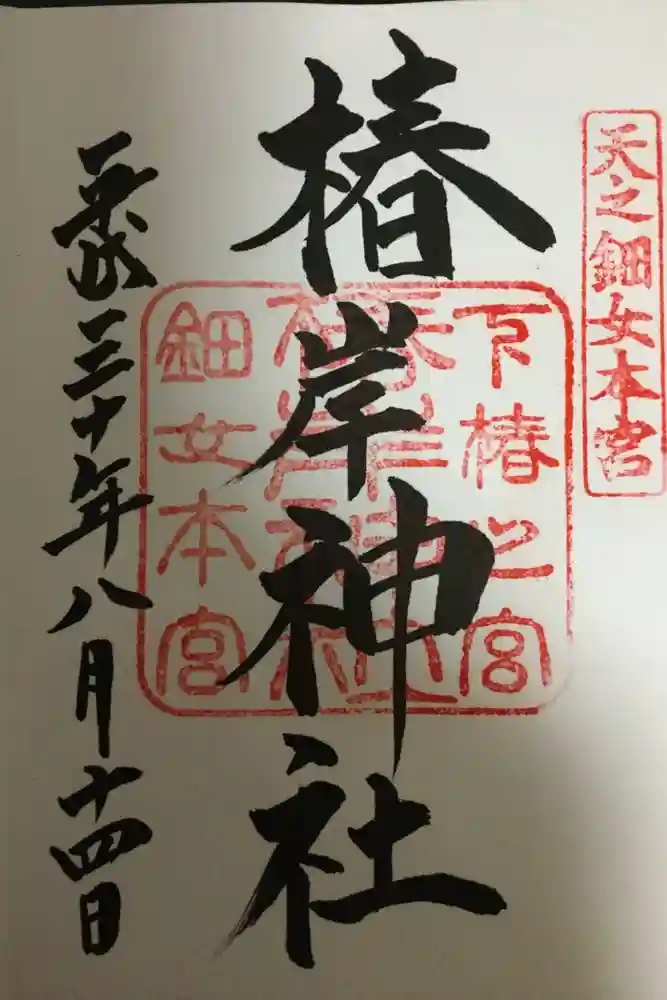 天之鈿女本宮
下椿之宮
椿岸神社
鈿女本宮
椿岸神社
平成三十年八月十四日